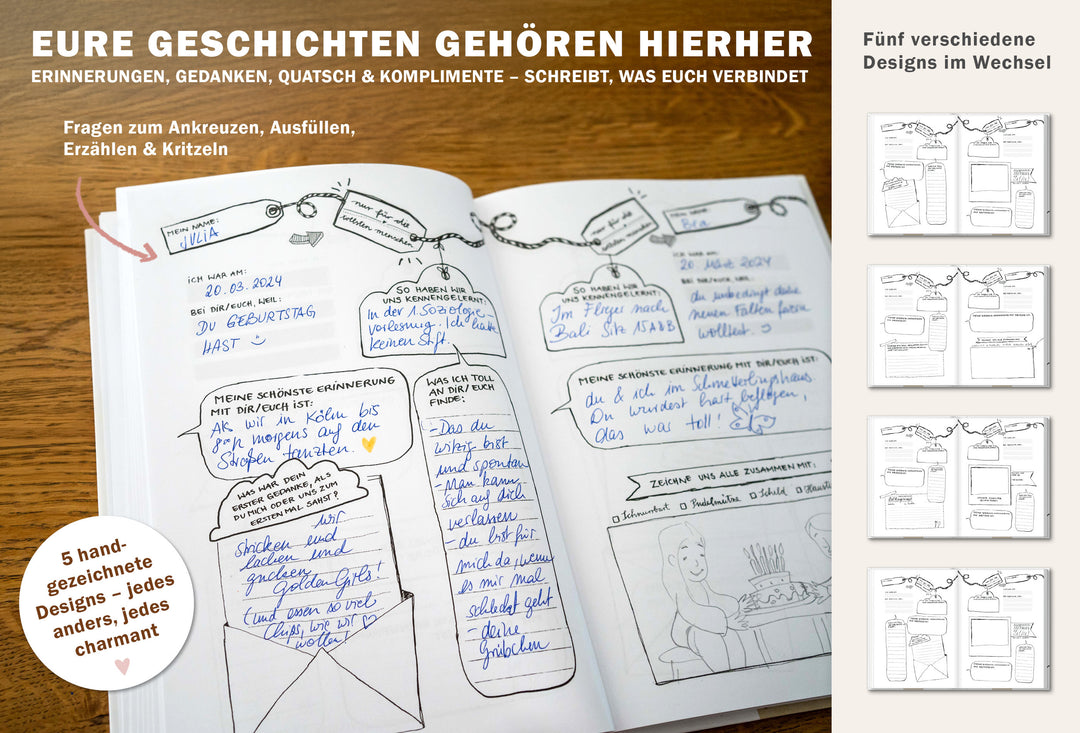 EURE GESCHICHTEN GEHÖREN HIERHER
ERINNERUNGEN, GEDANKEN, QUATSCH & KOMPLIMENTE – SCHREIBT, WAS EUCH VERBINDET
Fragen zum Ankreuzen, Ausfüllen,
Erzählen & Kritzeln
MEIN NAME:
JULIA
nur für die
tollsten menschen
iCH WAR AM:
20.03.2024
BEi DiR/EUCH, WEiL:
DU GEBURTSTAG
HAST
SO HABEN WiR
UNS KENNENGELERNT:
In der 1. Soziologie-
vorlesung. Ich hatte
keinen Stift.
MEiNE SCHÖNSTE ERiNNERUNG
MiT DiR/EUCH iST:
Als wir in Köln bis
morgens auf den
Straßen tanzten.
WAS WAR DEiN
ERSTER GEDANKE, ALS
DU MiCH ODER UNS ZUM
ERSTEN MAL SAHST?
wir
stricken und
lachen und
gucken
Golden Girls!
(und essen so viel
Chips, wie wir
wollen!
WAS iCH TOLL
AN DiR/EUCH
FiNDE:
- Das du
witzig bist
und spontan
- Man kann
sich auf dich
verlassen
- du bist für
mich da, wenn
es mir mal
schlecht geht
- deine
Grübchen
nur für die
tollsten menschen
MEIN NAME:
Bea
iCH WAR AM:
20. März 2024
BEi DiR/EUCH, WEiL:
du unbedingt deine
neuen Falten feiern
wolltest.
SO HABEN WiR
UNS KENNENGELERNT:
Im Flieger nach
Bali Sitz 15A&B
MEiNE SCHÖNSTE ERiNNERUNG MiT DiR/EUCH iST:
du & ich im Schmetterlingshaus.
Du wurdest fast beflogen,
das was toll!
ZEiCHNE UNS ALLE ZUSAMMEN MiT:
Schnurrbart Pudelmütze Schild
5 hand-
gezeichnete
Designs – jedes
anders, jedes
charmant
Fünf verschiedene
Designs im Wechsel